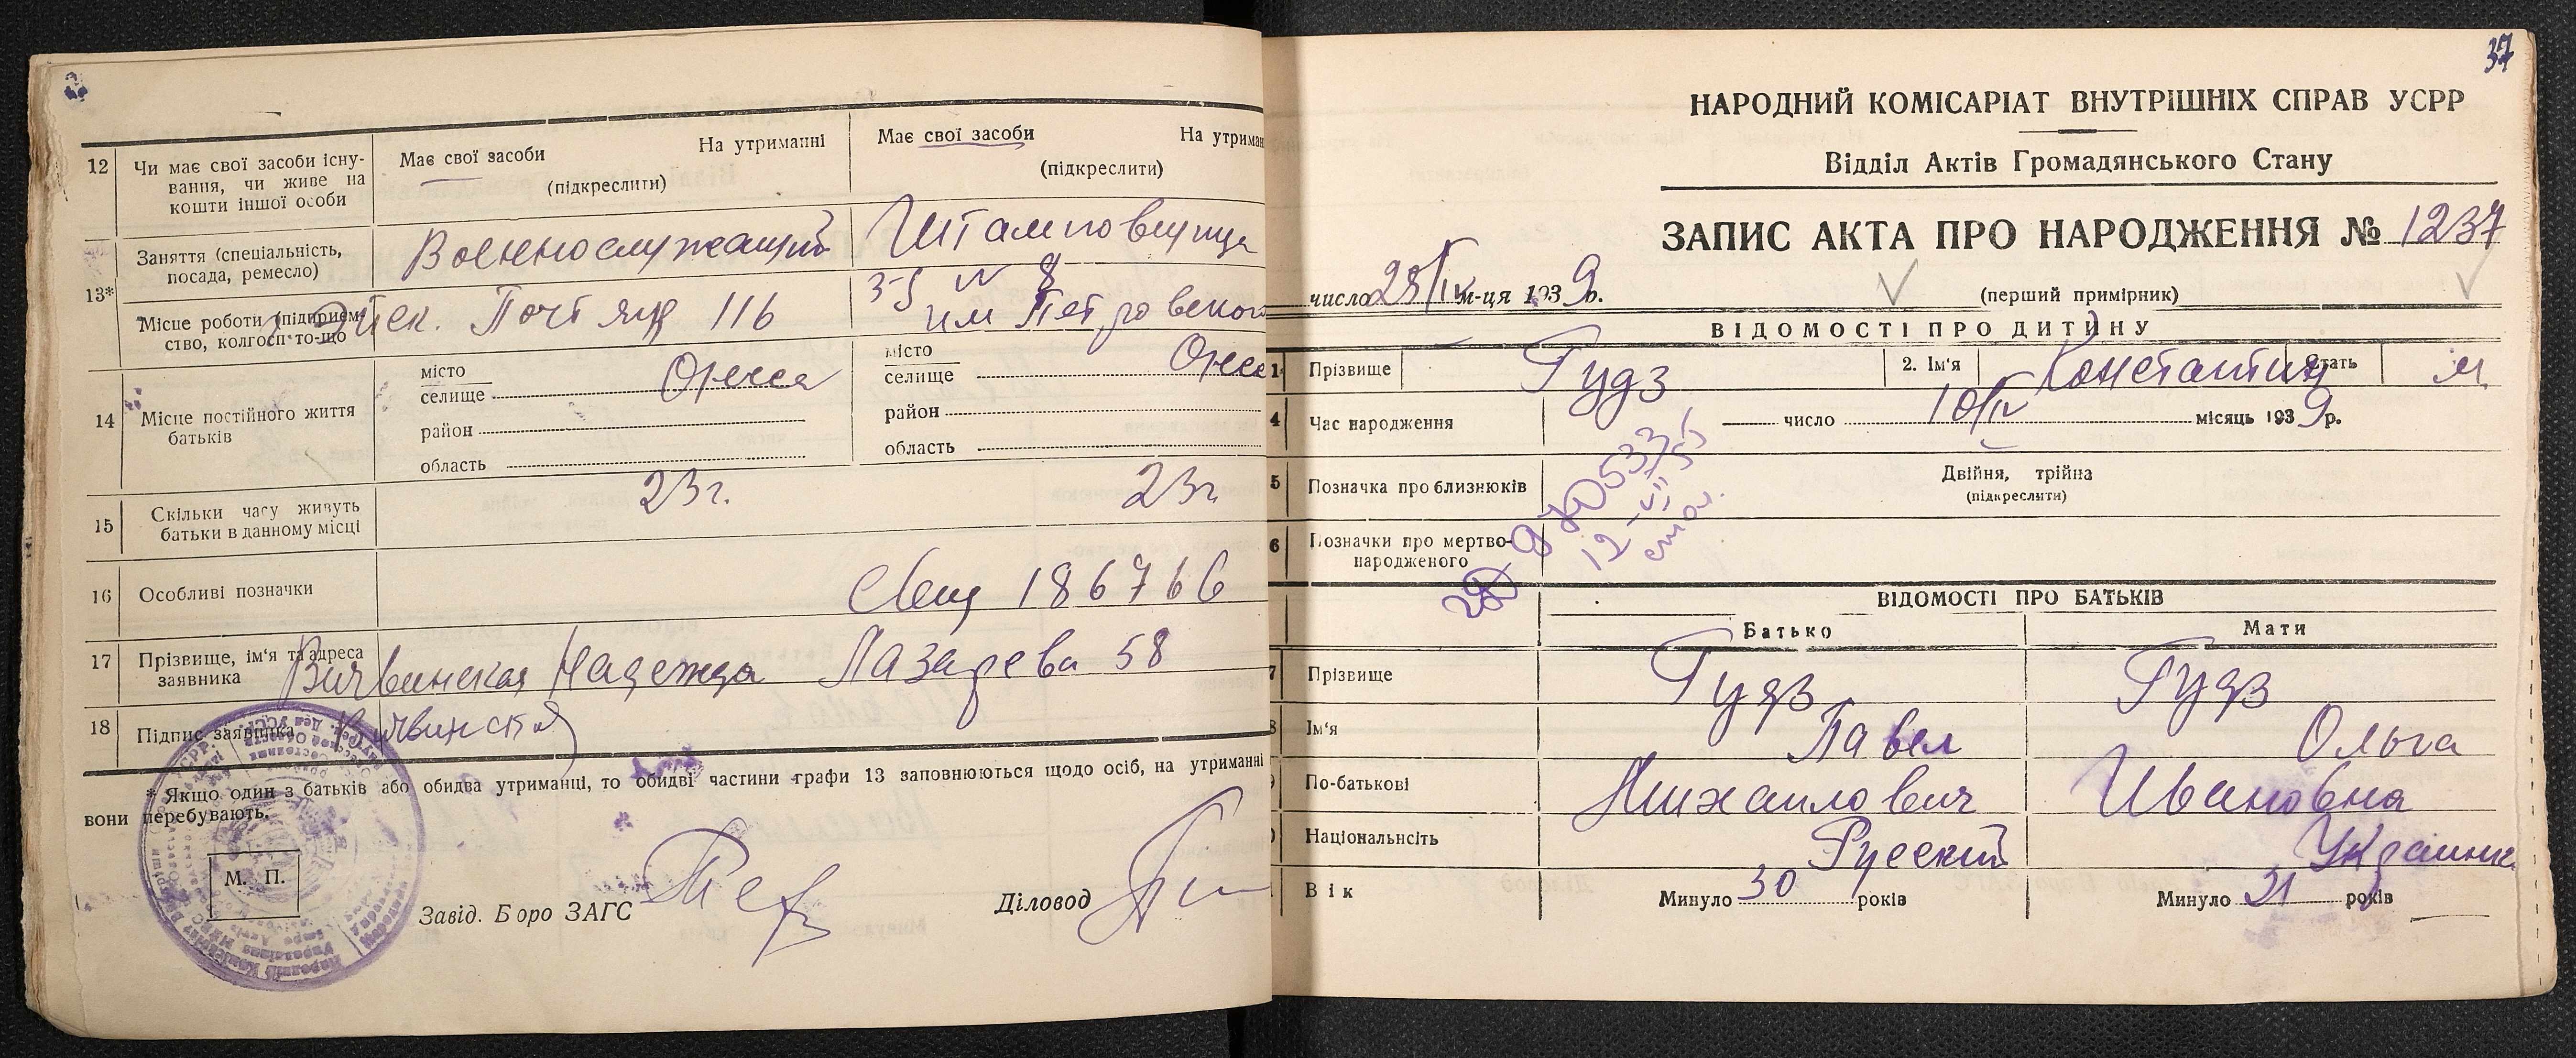 12 Чи має свої засоби існу-
вання, чи живе на
кошти іншої особи
Має свої засоби На утриманні
(підкреслити)
Має свої засоби На утриман
(підкреслити)
13* Заняття (спеціальність,
посада, ремесло)
Военнослужащий
Штамповщица
Місце роботи (підприєм-
ство, колгосп то-що
Почт ящ 116
З-д № 8
им Петровского
14 Місце постійного життя
батьків
місто
селище Одесса
район
область
місто
селище Одесс
район
область
15 Скільки часу живуть
батьки в данному місці
23 г. 23 г
16 Особливі позначки
Свид 186766
17 Прізвище, ім'я та адреса
заявника
Вичвинская Надежда Лазарева 58
18 Підпис заявника
Вичвинская
* Якщо один з батьків або обидва утриманці, то обидві частини графи 13 заповнюються щодо осіб, на утриманні
вони перебувають.
М. П.
Завід. Б оро ЗАГС
Діловод
37
НАРОДНИЙ КОМІСАРІАТ ВНУТРІШНІХ СПРАВ УСРР
Відділ Актів Громадянського Стану
ЗАПИС АКТА ПРО НАРОДЖЕННЯ № 1237
число 28/IV м-ця 1939 р.
(перший примірник)
ВІДОМОСТІ ПРО ДИТИНУ
1 Прізвище Гудз 2. Ім'я Константин Стать м
4 Час народження число 10/IV місяць 1939 р.
5 Позначка про близнюків
Двійня, трійна
(підкреслити)
6 Позначки про мертво-
народженого
ВІДОМОСТІ ПРО БАТЬКІВ
Батько Мати
7 Прізвище Гудз Гудз
8 Ім'я Павел Ольга
По-батькові Михаилович Ивановна
Національнсіть Русский Украинка
Вік Минуло 30 років Минуло 31 років